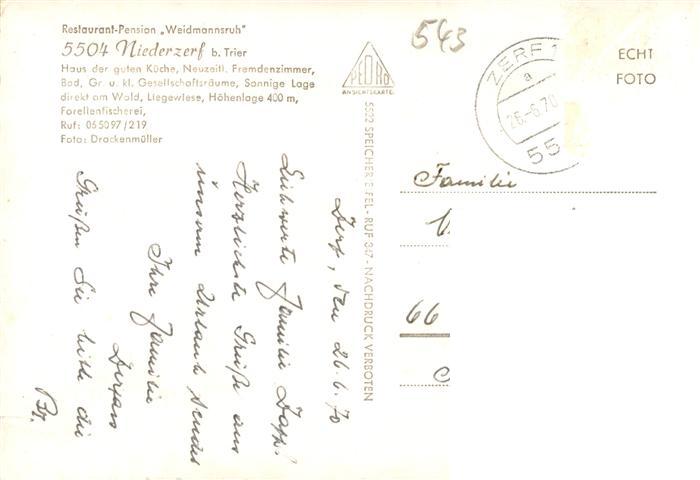 Restaurant-Pension „Weidmannsruh"
5504 Niederzerf b. Trier
Haus der guten Küche, Neuzeitl. Fremdenzimmer,
Bad, Gr. u. kl. Gesellschaftsräume, Sonnige Lage
direkt am Wald, Liegewiese, Höhenlage 400 m,
Forellenfischerei,
Ruf: 065097/219
Foto: Drockenmüller
543
PEDRO
ANSICHTSKARTE
5522 SPEICHER EIFEL - RUF 347 - NACHDRUCK VERBOTEN
ZERF 1
a
26.-6.70
55
ECHT
FOTO
Zerf, den 26.6.70
Familie
Herzlichste Grüße aus
unserm Urlaub sendet
Ihre Familie
Grüßen Sie bitte die
Familie
66